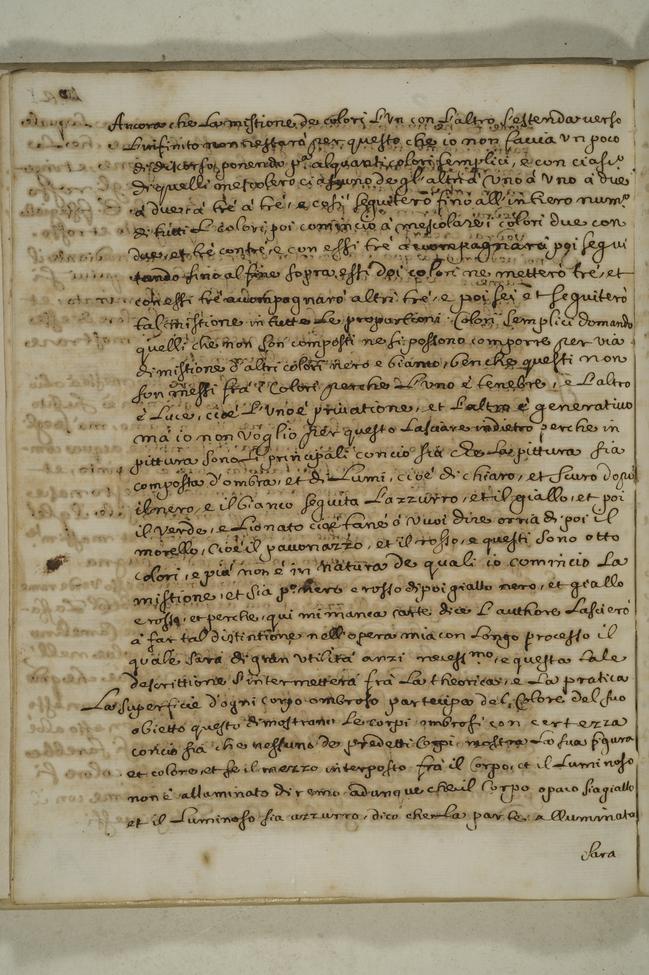 Ancora che La mistione de colori L'un con L'altro s'estenda verso
L'infinito non restarò per questo che io non faccia un poco
di discorso, ponendo pa alquanti colori semplici, e con ciascuo
di quelli mescolerò ciascuno degl'altri a uno a uno a due
a due, a trè a trè, e così seguiterò fino all'intiero numo
di tutti L colori, poi comincio a mescolare i colori due con
due, et trè con trè, e con essi trè accompagnarò poi segui
tando fino al fine sopra essi doi colori ne metterò trè, et
con essi trè accompagnarò altri trè, e poi sei et seguiterò
tal mistione in tutte Le proportioni. Colori semplici domando
quelli che non son composti ne si possono comporre per via
di mistione d'altri colori nero e bianco, benche questi non
son messi frà i Colori perche L'uno è tenebre, e L'altro
è Luce, cioè L'uno è privatione, et L'altro è generativo
mà io non voglio per questo Lasciare indietro perche in
pittura sono L principali concio sia che La pittura sia
composta d'ombra, et di Lumi, cioè di chiaro, et scuro doppo
il nero, e il bianco seguita L'azzurro, et il giallo, et poi
il verde, e Lionato cioè tanè ò vuoi dire ocria di poi il
morello, cioè il pavonazzo, et il rosso, e questi sono otto
colori, e più non è in natura de quali io comincio La
mistione, et sia po nero e rosso di poi giallo nero, et giallo
e rosso, et perche qui mi manca carte dice L'authore Lascierò
à far tal distintione nell'opera mia con Longo processo il
quale sarà di gran utilità anzi necessmo, e questa tale
descrittione s'intermetterà frà La theorica, e La pratica
La superficie d'ogni corpo ombroso partecipa del Colore del suo
obietto questo dimostrano Le corpi ombrosi con certezza
concio sia che nessuno de predetti Corpi mostra La sua figura
et colore, et se il mezzo interposto frà il Corpo, et il Luminoso
non è alluminato diremo adunque che il Corpo opaco sia giallo
et il Luminoso sia azzurro, dico che La parte alluminata
Sara